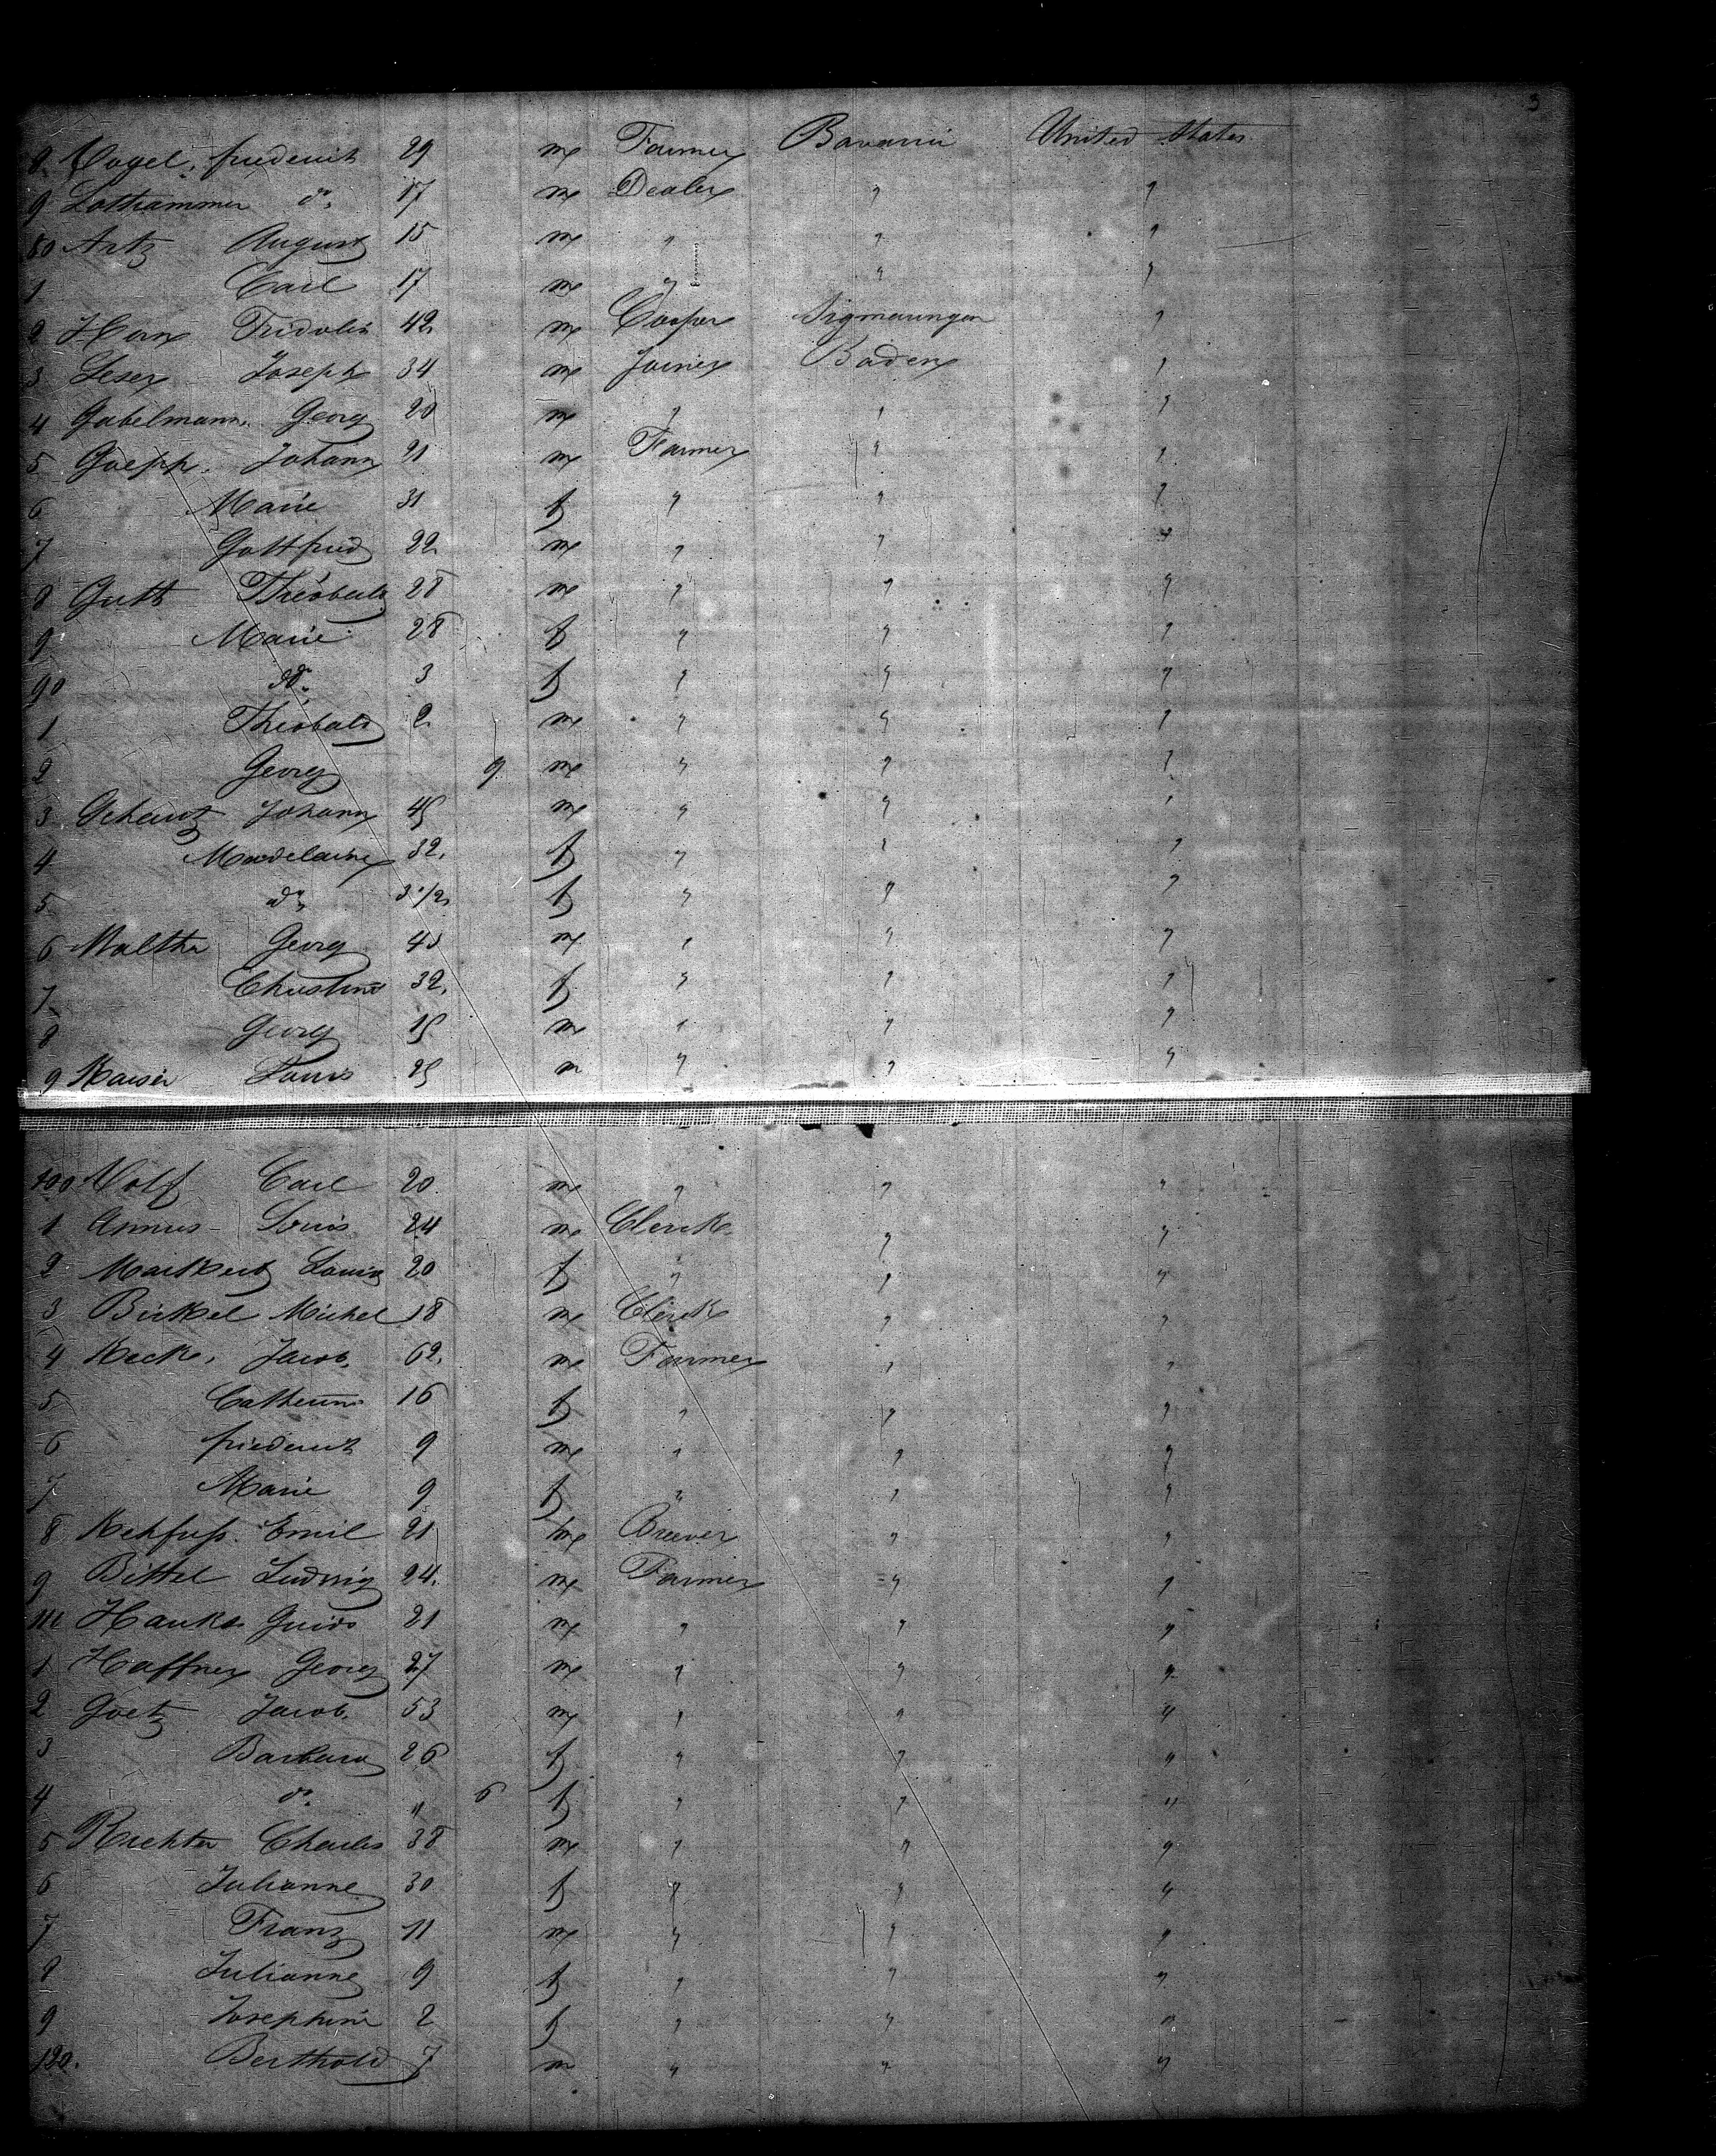 3
8. Vogel, friederich 29 m Farmer Bavaria United States
9 Lothammer do. 17 m Dealer " "
80 Artz August 15 m " " "
1 Carl 17 m " " "
2 Horn Fridolin 42 m Cooper Sigmaringen "
3 Leser Joseph 34 m Joiner Baden "
4 Gabelmann Georg 20 m " " "
5 Goepp. Johann 21 m Farmer " "
6 Marie 31 f " " "
7 Gottfried 22 m " " "
8 Guth Théobald 28 m " " "
9 Marie 28 f " " "
90 do. 3 f " " "
1 Théobald 2 m " " "
2 Georg 9 m " " "
3 Johann 45 m " " "
4 Madelaine 32 f " " "
5 do 3 1/2 f " " "
6 Walther Georg 45 m " " "
7 Christine 32 f " " "
8 Georg 15 m " " "
9 Kaiser Louis 25 m " " "
100 Wolf Carl 20 m " " "
1 Annus Louis 24 m Clerck " "
2 Markert Louis 20 f " " "
3 Bickel Michel 18 m Clerck " "
4 Keck, Jacob 62 m Farmer " "
5 Catherine 16 f " " "
6 friederich 9 m " " "
7 Marie 9 f " " "
8 Rehfuss. Emil 21 m Brewer " "
9 Bittel Ludwig 24 m Farmer " "
110 Hauks Guido 21 m " " "
1 Haffner Georg 27 m " " "
2 Goetz Jacob 53 m " " "
3 Barbara 26 f " " "
4 do. " 6 f " " "
5 Richter Charles 38 m " " "
6 Julianne 30 f " " "
7 Franz 11 m " " "
8 Julianne 9 f " " "
9 Josephine 2 f " " "
120. Berthold 7 m " " "